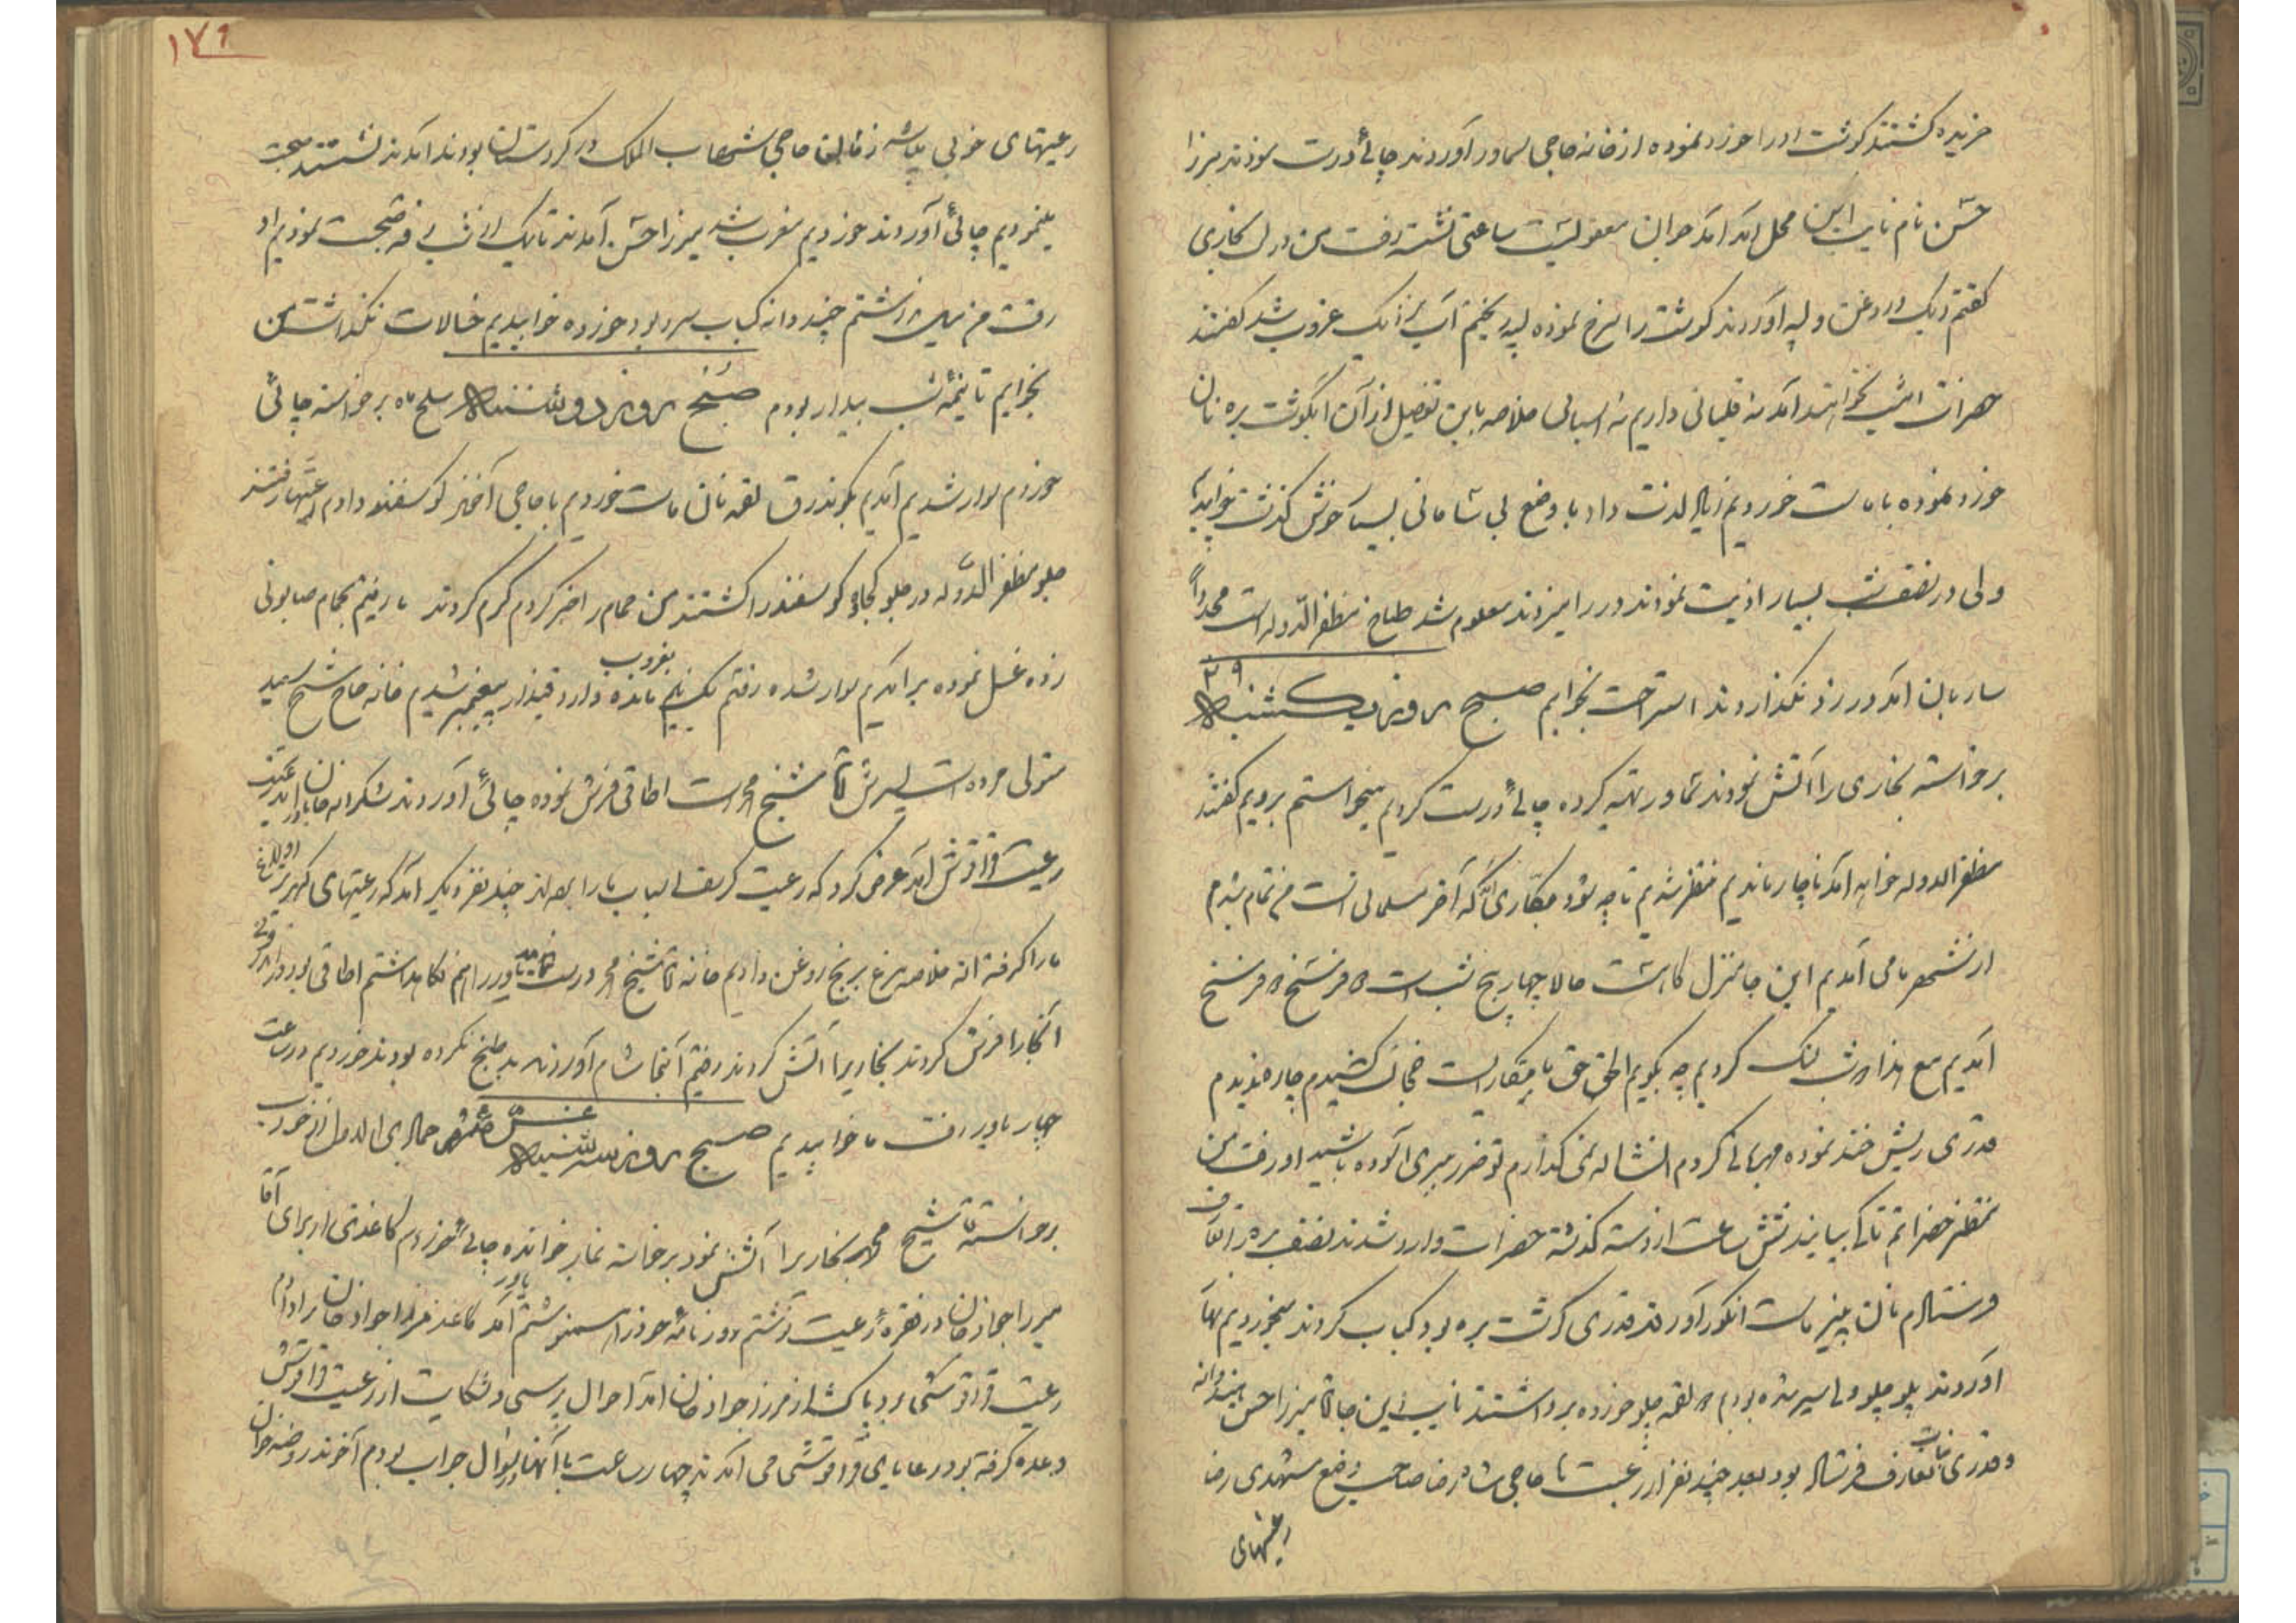 خریده کشتند گوشت او را خورد نموده از خانه حاجی سماور آوردند چائی درست نمودند میرزا
حسن نام نایب این محل آمد جوان معقولیست ساعتی نشسته رفت من در بخاری
گفتم دیک و روغن و لپه آوردند گوشت را سرخ نموده لپه ریختم آب نزدیک غروب شد گفتند
حضرات امشب نخواهند آمد نه قلیانی داریم نه اسبابی خلاصه باین تفصیل از آن آبگوشت بره نان
خورد نموده با ماست خوردیم زیاد لذت داد با وضع بی شامانی بسیار خوش گذشت خوابیدیم
ولی در نصف شب بسیار اذیت نمودند در را میزدند معلوم شد طباخ مظفرالدوله است مجدداً
ساربان آمد در زد نگذاردند استراحت بخوابم صبح روز یکشنبه ۲۹
برخواسته بخاری را آتش نمودند سماور تهیه کرده چائی درست کردیم میخواستم برویم گفتند
مظفرالدوله خواهد آمد ناچار ماندیم منتظر شدیم تا چه شود مکاری که آخر مسلمانی است تمام شدم
از شهر ما می آمدیم این جا منزل ماست حالا چهار پنج شب است ۵ فرسخ ۵ فرسخ
آمدیم مع هذا دو شب لنگ کردیم چه بگویم الحق حق با مکاریست خجالت کشیدم چاره ندیدم
قدری ریش خند نموده مهربانی کردم انشاله نمی گذارم تو ضرر ببری آسوده باشید او رفت من
منتظر حضراتم تا کی بیایند شش ساعت از دسته گذشته حضرات وارد شدند نصف بره در اتاق
فرستادم نان پنیر ماست انگور آوردند قدری گوشت بره بود کباب کردند میخوردیم نهار
آوردند پلو چلو ولی سیر شده بودم ۵ لقمه چلو خورده برداشتند نایب این جا آقا میرزا حسن هندوانه
و قدری نبات تعارف فرستاده بود بعد چند نفر از رعیت با حاجی شاه رضا صاحب وضع مشهدی رضا
رعیتهای
۱۷۹
رعیتهای خوبی باشند زمانیکه حاجی شهاب الملک در کردستان بودند آمدند نشستند صحبت
میکردیم چائی آوردند خوردیم مغرب شد میرزا حسن آمدند تا یک از شب رفته صحبت نمودیم او
رفت من میل نداشتم چند دانه کباب سرد بود خورده خوابیدیم خیالات نگذاشت من
بخوابم تا نیمه شب بیدار بودم صبح روز دوشنبه سلخ ماه برخواسته چائی
خوردم سوار شدیم آمدیم بگوندرق لقمه نان ماست خوردیم با حاجی آخوند گوسفند دادم رعیتها رفتند
جلو مظفرالدوله در جلو کجاوه گوسفند را کشتند من حمام را خبر کردم گرم کردند ما رفتم بحمام صابونی
زده غسل نموده برآمدیم سوار شده رفتم یک نیم بغروب مانده وارد قیذار پیغمبر شدیم خانه حاج شیخ سعید
متولی مرده است پسرش آقا شیخ محمد است اطاقی فرش نموده چائی آوردند شکراله خان یاور آمد گفت
رعیت قراقوش آمد عرض کرد که رعیت گرسف اسباب ما را بعد از چند نفر دیگر آمد که رعیتهای کهریز اولاغ
ما را گرفته اند خلاصه مرغ برنج روغن دادیم خانه آقا شیخ محمد درست نمایند یاور را هم نگاهداشتم اطاقی بود
آنجا را فرش کردند بخاریرا آتش کردند رفتیم آنجا شام آوردند بد طبخ نکرده بودند خوردیم در ساعت
چهار یاور رفت ما خوابیدیم صبح روز سه شنبه غره شهر جمادی الاول از خواب
برخواسته آقا شیخ محمد بخاریرا آتش نمود برخاسته نماز خوانده چائی خوردم کاغذی از برای آقا
میرزا جواد خان در فقره رعیت نوشتم روزنامه خود را مینوشتم یاور آمد کاغذ میرزا جواد خان را دادم
رعیت قراقوشی برد پاکت از میرزا جواد خان آمد احوال پرسی و شکایت از رعیت قراقوش
وعده گرفته بود رعایای قراقوشی می آمدند چهار ساعت با آنها سؤال جواب بودم آخوند روضه خوان